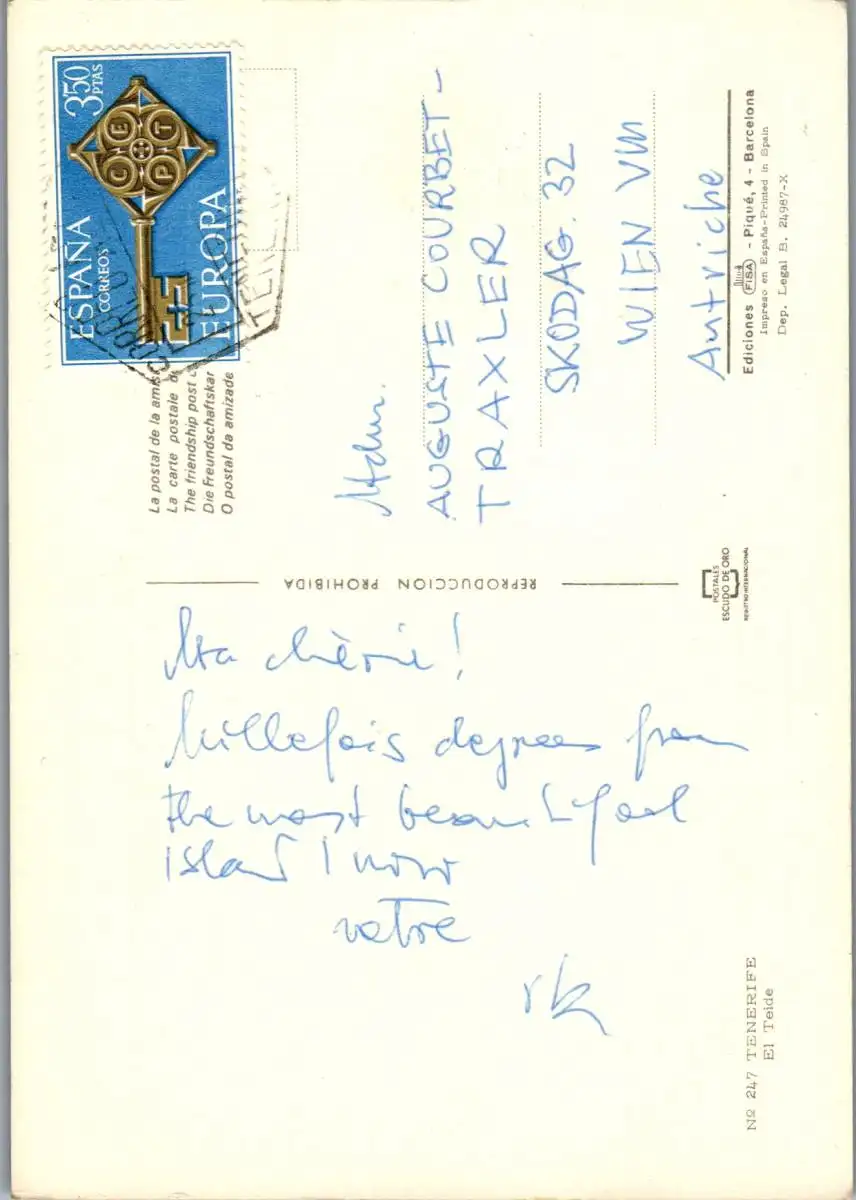 Ma chérie!
Millefois degrees from
the most beautifool
island I now
votre
rk
Nº 247 TENERIFE
El Teide
REPRODUCCION PROHIBIDA
POSTALES
ESCUDO DE ORO
REGISTRO INTERNACIONAL
ESPAÑA
CORREOS
3'50
PTAS
C E P T
EUROPA
La postal de la amis
La carte postale d
The friendship post c
Die Freundschaftskar
O postal da amizade
Mdm.
AUGUSTE COURBET-
TRAXLER
SKODAG. 32
WIEN VIII
Autriche
Ediciones FISA - Piqué, 4 - Barcelona
Impreso en España-Printed in Spain
Dep. Legal B. 24987-X